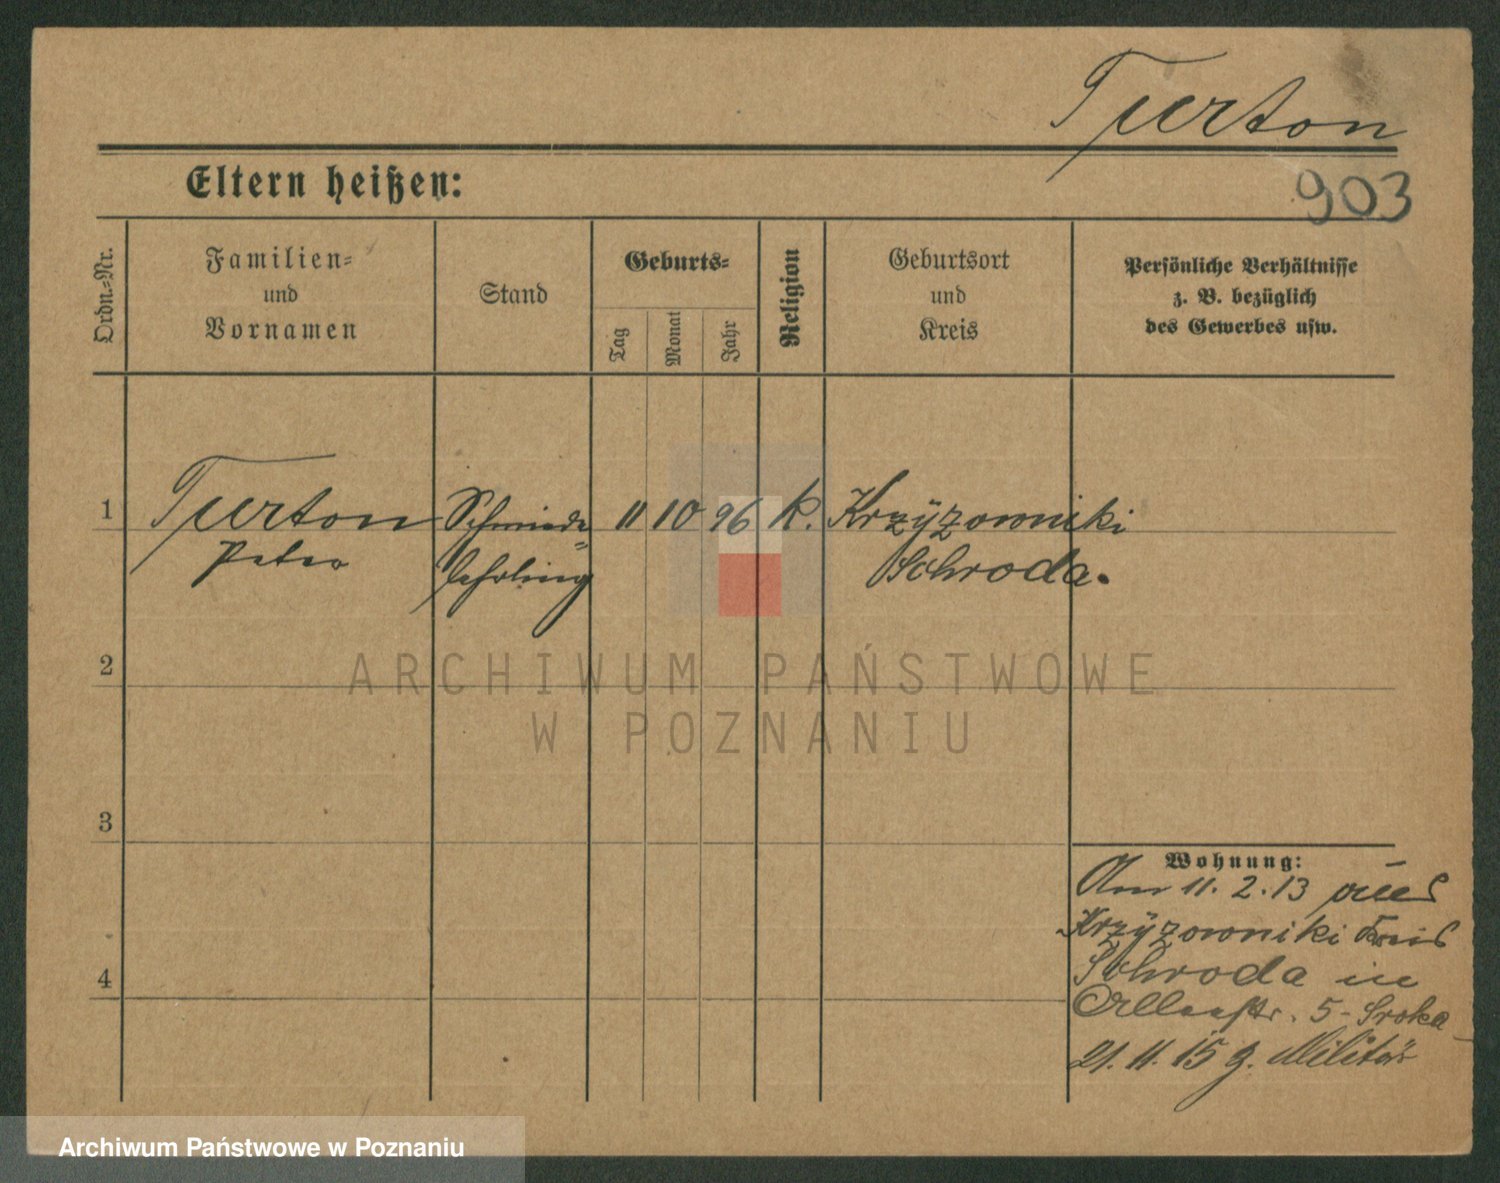 Turton
903
Eltern heißen:
Ordn.-Nr.
Familien-
und
Vornamen
Stand
Geburts-
Tag
Monat
Jahr
Religion
Geburtsort
und
Kreis
Persönliche Verhältnisse
z. B. bezüglich
des Gewerbes usw.
1
Turton
Peter
Schmiede
lehrling
11
10
96
k.
Krzyzowniki
Schroda.
2
3
4
Wohnung:
Am 11. 2. 13 aus
Krzyzowniki Kreis
Schroda in
5 - Sroka
21. 11. 15 z. Militär
ARCHIWUM PAŃSTWOWE
W POZNANIU
Archiwum Państwowe w Poznaniu